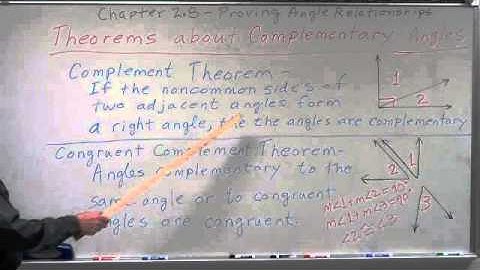 Chapter 2.8 - Proving Angle Relationships
Theorems about Complementary Angles
Complement Theorem -
If the noncommon sides of
two adjacent angles form
a right angle, the the angles are complementary
1
2
Congruent Complement Theorem-
Angles complementary to the
same angle or to congruent
angles are congruent.
2 1
3
m∠1+m∠2=90°
m∠1+m∠3=90°
∠2≅∠3